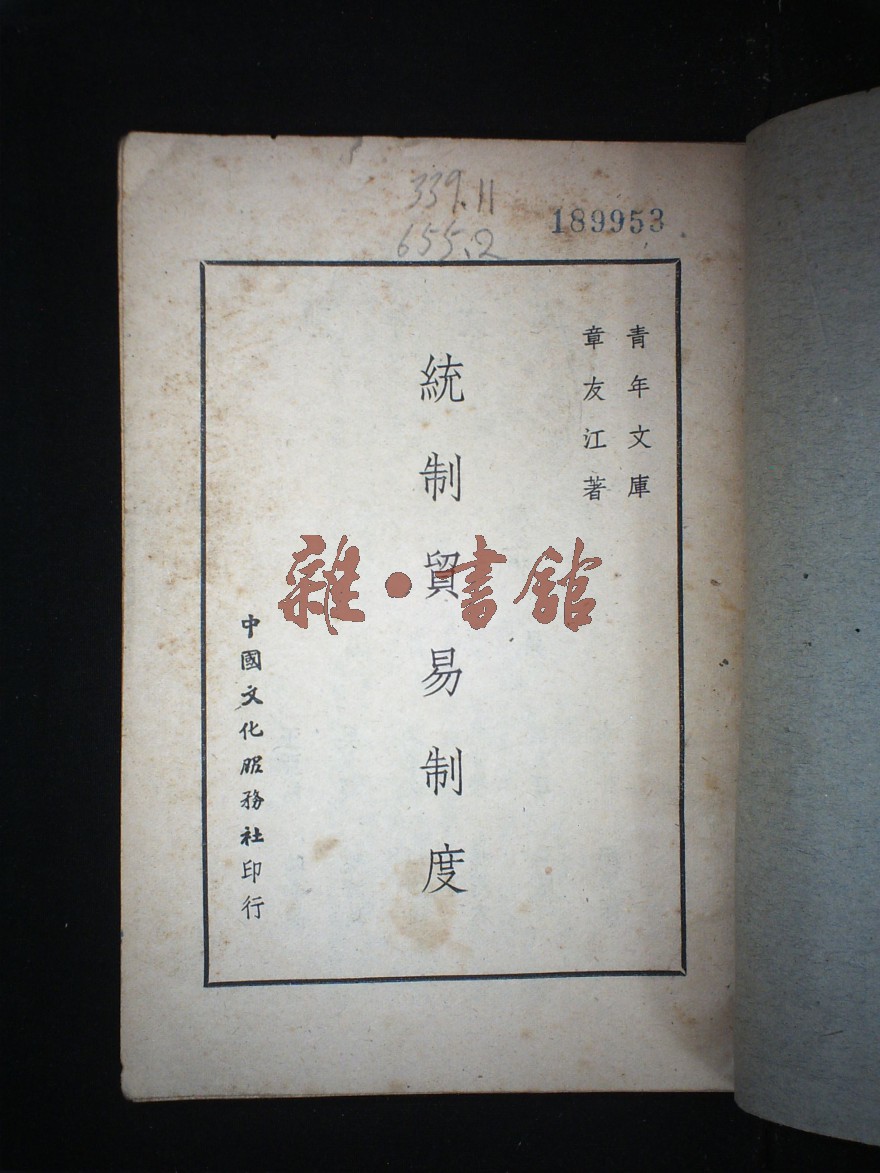 339.11
655.2
189953
青年文庫
章友江著
統制貿易制度
中國文化服務社印行
雜·書館